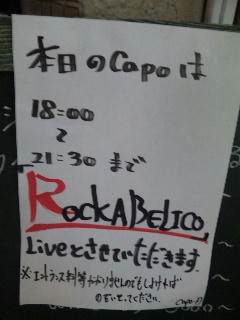 本日のCapoは
18:00
～
21:30まで
ROCKABELICO,
Liveとさせていただきます.
※エントランス料等かかりませんのでもしよければ
のぞいてってください.
capo